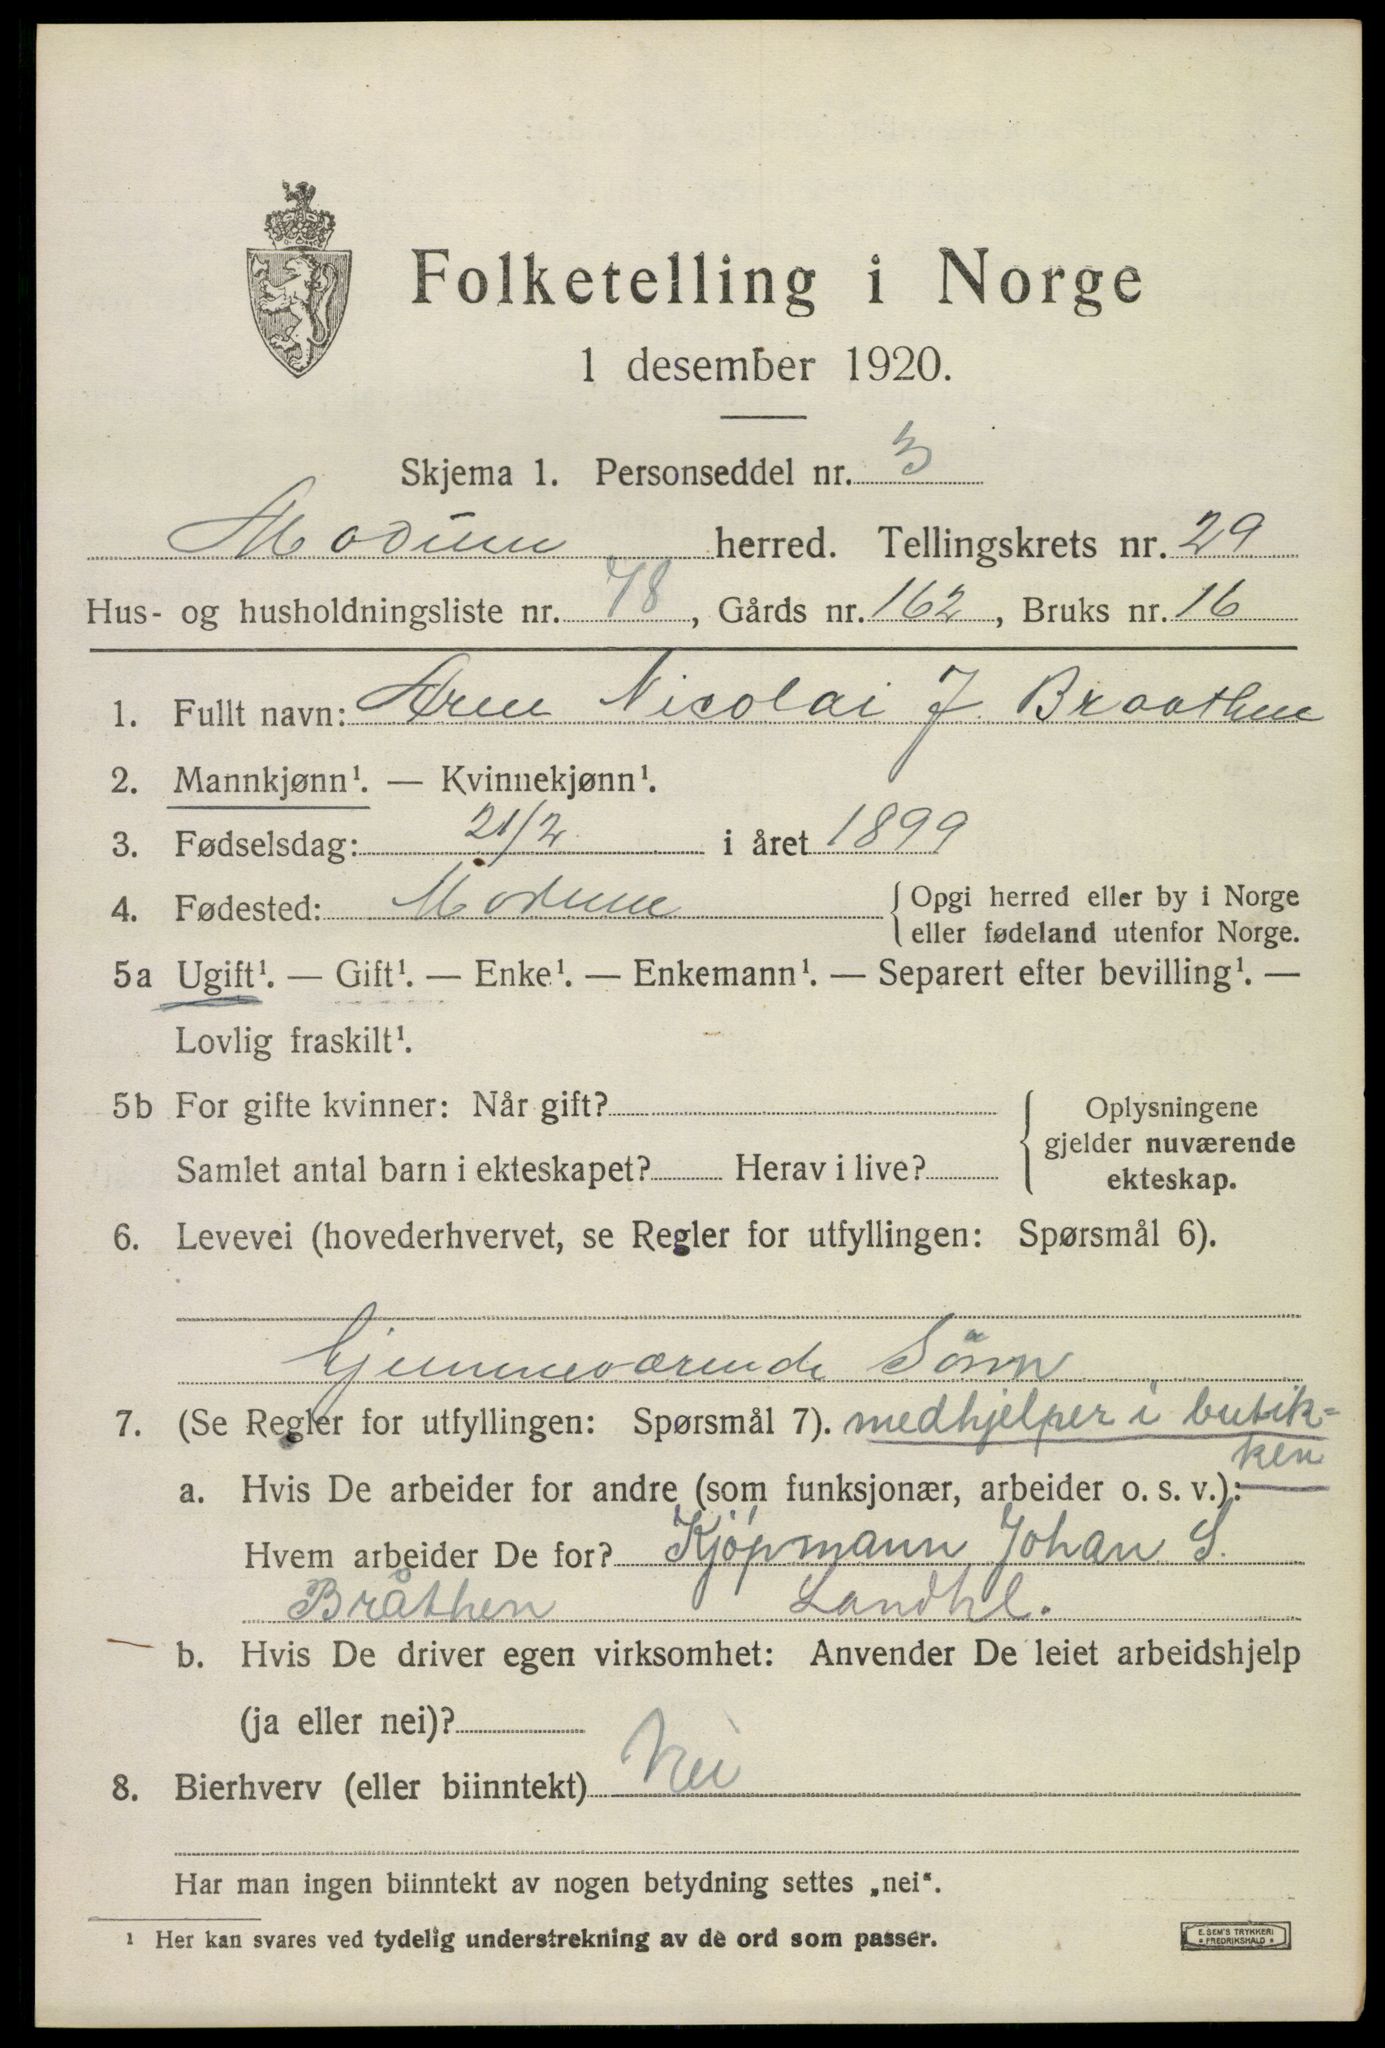 Folketelling i Norge
1 desember 1920.
Skjema 1. Personseddel nr. 3
Modum herred. Tellingskrets nr. 29
Hus- og husholdningsliste nr. 78, Gårds nr. 162, Bruks nr. 16
1. Fullt navn: Aren Nicolai J. Braathen
2. Mannkjønn¹. — Kvinnekjønn¹.
3. Fødselsdag: 21/2 i året 1899
4. Fødested: Modum { Opgi herred eller by i Norge
eller fødeland utenfor Norge.
5a Ugift¹. — Gift¹. — Enke¹. — Enkemann¹. — Separert efter bevilling¹. —
Lovlig fraskilt¹.
5b For gifte kvinner: Når gift?
Samlet antal barn i ekteskapet? Herav i live?
{ Oplysningene
gjelder nuværende
ekteskap.
6. Levevei (hovederhvervet, se Regler for utfyllingen: Spørsmål 6).
Hjemmeværende Sönn
7. (Se Regler for utfyllingen: Spørsmål 7). medhjelper i butik-
ken
a. Hvis De arbeider for andre (som funksjonær, arbeider o. s. v.):
Hvem arbeider De for? Kjöpmann Johan S.
Bråthen Landhl.
b. Hvis De driver egen virksomhet: Anvender De leiet arbeidshjelp
(ja eller nei)?
8. Bierhverv (eller biinntekt) Nei
Har man ingen biinntekt av nogen betydning settes „nei“.
¹ Her kan svares ved tydelig understrekning av de ord som passer.
E. SEM'S TRYKKERI
• FREDRIKSHALD •